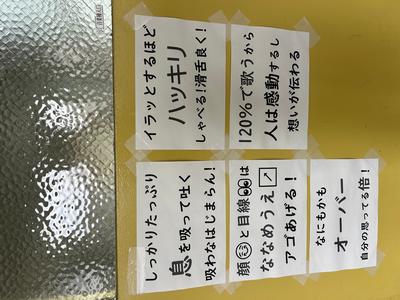 イラッとするほど
ハッキリ
しゃべる!滑舌良く!
120%で歌うから
人は感動するし
想いが伝わる
しっかりたっぷり
息を吸って吐く
吸わなはじまらん!
顔と目線は
ななめうえ↗
アゴあげる!
なにもかも
オーバー
自分の思ってる倍!